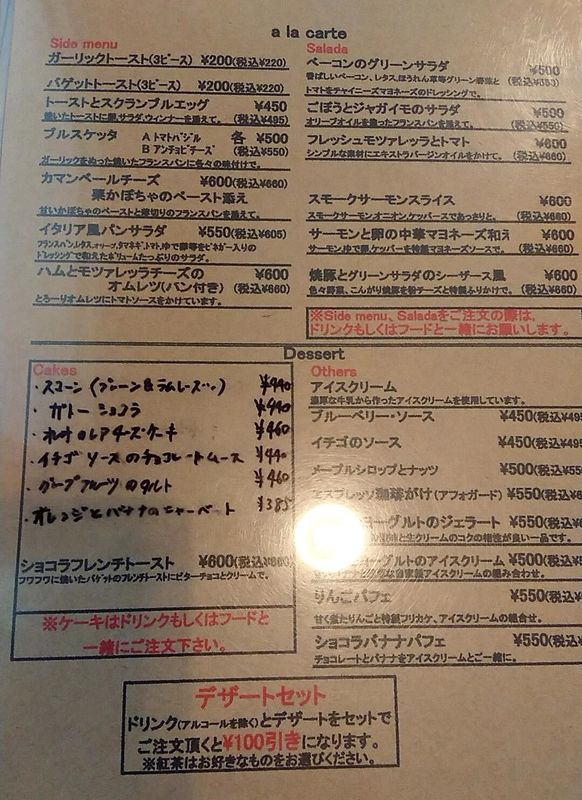 a la carte
Side menu
ガーリックトースト(3ピース) ¥200(税込¥220)
バゲットトースト(3ピース) ¥200(税込¥220)
トーストとスクランブルエッグ ¥450
焼いたトーストに卵、サラダ、ウィンナーを添えて。 (税込¥495)
ブルスケッタ Aトマトバジル 各 ¥500
Bアンチョビチーズ (税込¥550)
ガーリックをぬった焼いたフランスパンに各々の味付けで。
カマンベールチーズ ¥600(税込¥660)
栗かぼちゃのペースト添え
甘いかぼちゃのペーストと薄切りのフランスパンを添えて。
イタリア風パンサラダ ¥550(税込¥605)
フランスパン、レタス、オリーブ、タマネギ、トマト、ゆで卵等をビネガー入りの
ドレッシングで和えたボリュームたっぷりのサラダ。
ハムとモツァレッラチーズの ¥600
オムレツ(パン付き) (税込¥660)
とろーりオムレツにトマトソースをかけています。
Salada
ベーコンのグリーンサラダ ¥500
香ばしいベーコン、レタス、ほうれん草等グリーン野菜と
トマトをチャイニーズマヨネーズのドレッシングで。
ごぼうとジャガイモのサラダ ¥500
オリーブオイルを塗ったフランスパンを添えて。 (税込¥550)
フレッシュモツァレッラとトマト ¥600
シンプルな素材にエキストラバージンオイルをかけて。 (税込¥660)
スモークサーモンスライス ¥600
スモークサーモンオニオンケッパースであっさりと。 (税込¥660)
サーモンと卵の中華マヨネーズ和え ¥600
サーモン、ゆで卵、ケッパーを特製マヨネーズソースで。 (税込¥660)
焼豚とグリーンサラダのシーザース風 ¥600
色々野菜、こんがり焼豚を粉チーズと特製ふりかけで。 (税込¥660)
※Side menu、Saladaをご注文の際は、
ドリンクもしくはフードと一緒にお願いします。
Dessert
Cakes
・スコーン (プレーン&ラムレーズン) ¥440
・ガトーショコラ ¥440
・レアチーズケーキ ¥460
・イチゴソースのチョコレートムース ¥440
・グレープフルーツのタルト ¥460
・オレンジとバナナのシャーベット ¥385
ショコラフレンチトースト ¥600(税込¥660)
フワフワに焼いたバゲットのフレンチトーストにビターチョコとクリームで。
※ケーキはドリンクもしくはフードと
一緒にご注文下さい。
Others
アイスクリーム
濃厚な牛乳から作ったアイスクリームを使用しています。
ブルーベリー・ソース ¥450(税込¥495
イチゴのソース ¥450(税込¥495
メープルシロップとナッツ ¥500(税込¥55
エスプレッソ珈琲がけ(アフォガード) ¥550(税込¥
ヨーグルトのジェラート ¥550(税込¥
と生クリームのコクの相性が良い一品です。
ヨーグルトのアイスクリーム ¥500(税込¥5
自家製アイスクリームの組み合わせ。
りんごパフェ ¥550(税込
甘く煮たりんごと特製フリカケ、アイスクリームの組合せ。
ショコラバナナパフェ ¥550(税込
チョコレートとバナナをアイスクリームとご一緒に。
デザートセット
ドリンク(アルコールを除く)とデザートをセットで
ご注文頂くと¥100引きになります。
※紅茶はお好きなものをお選びください。